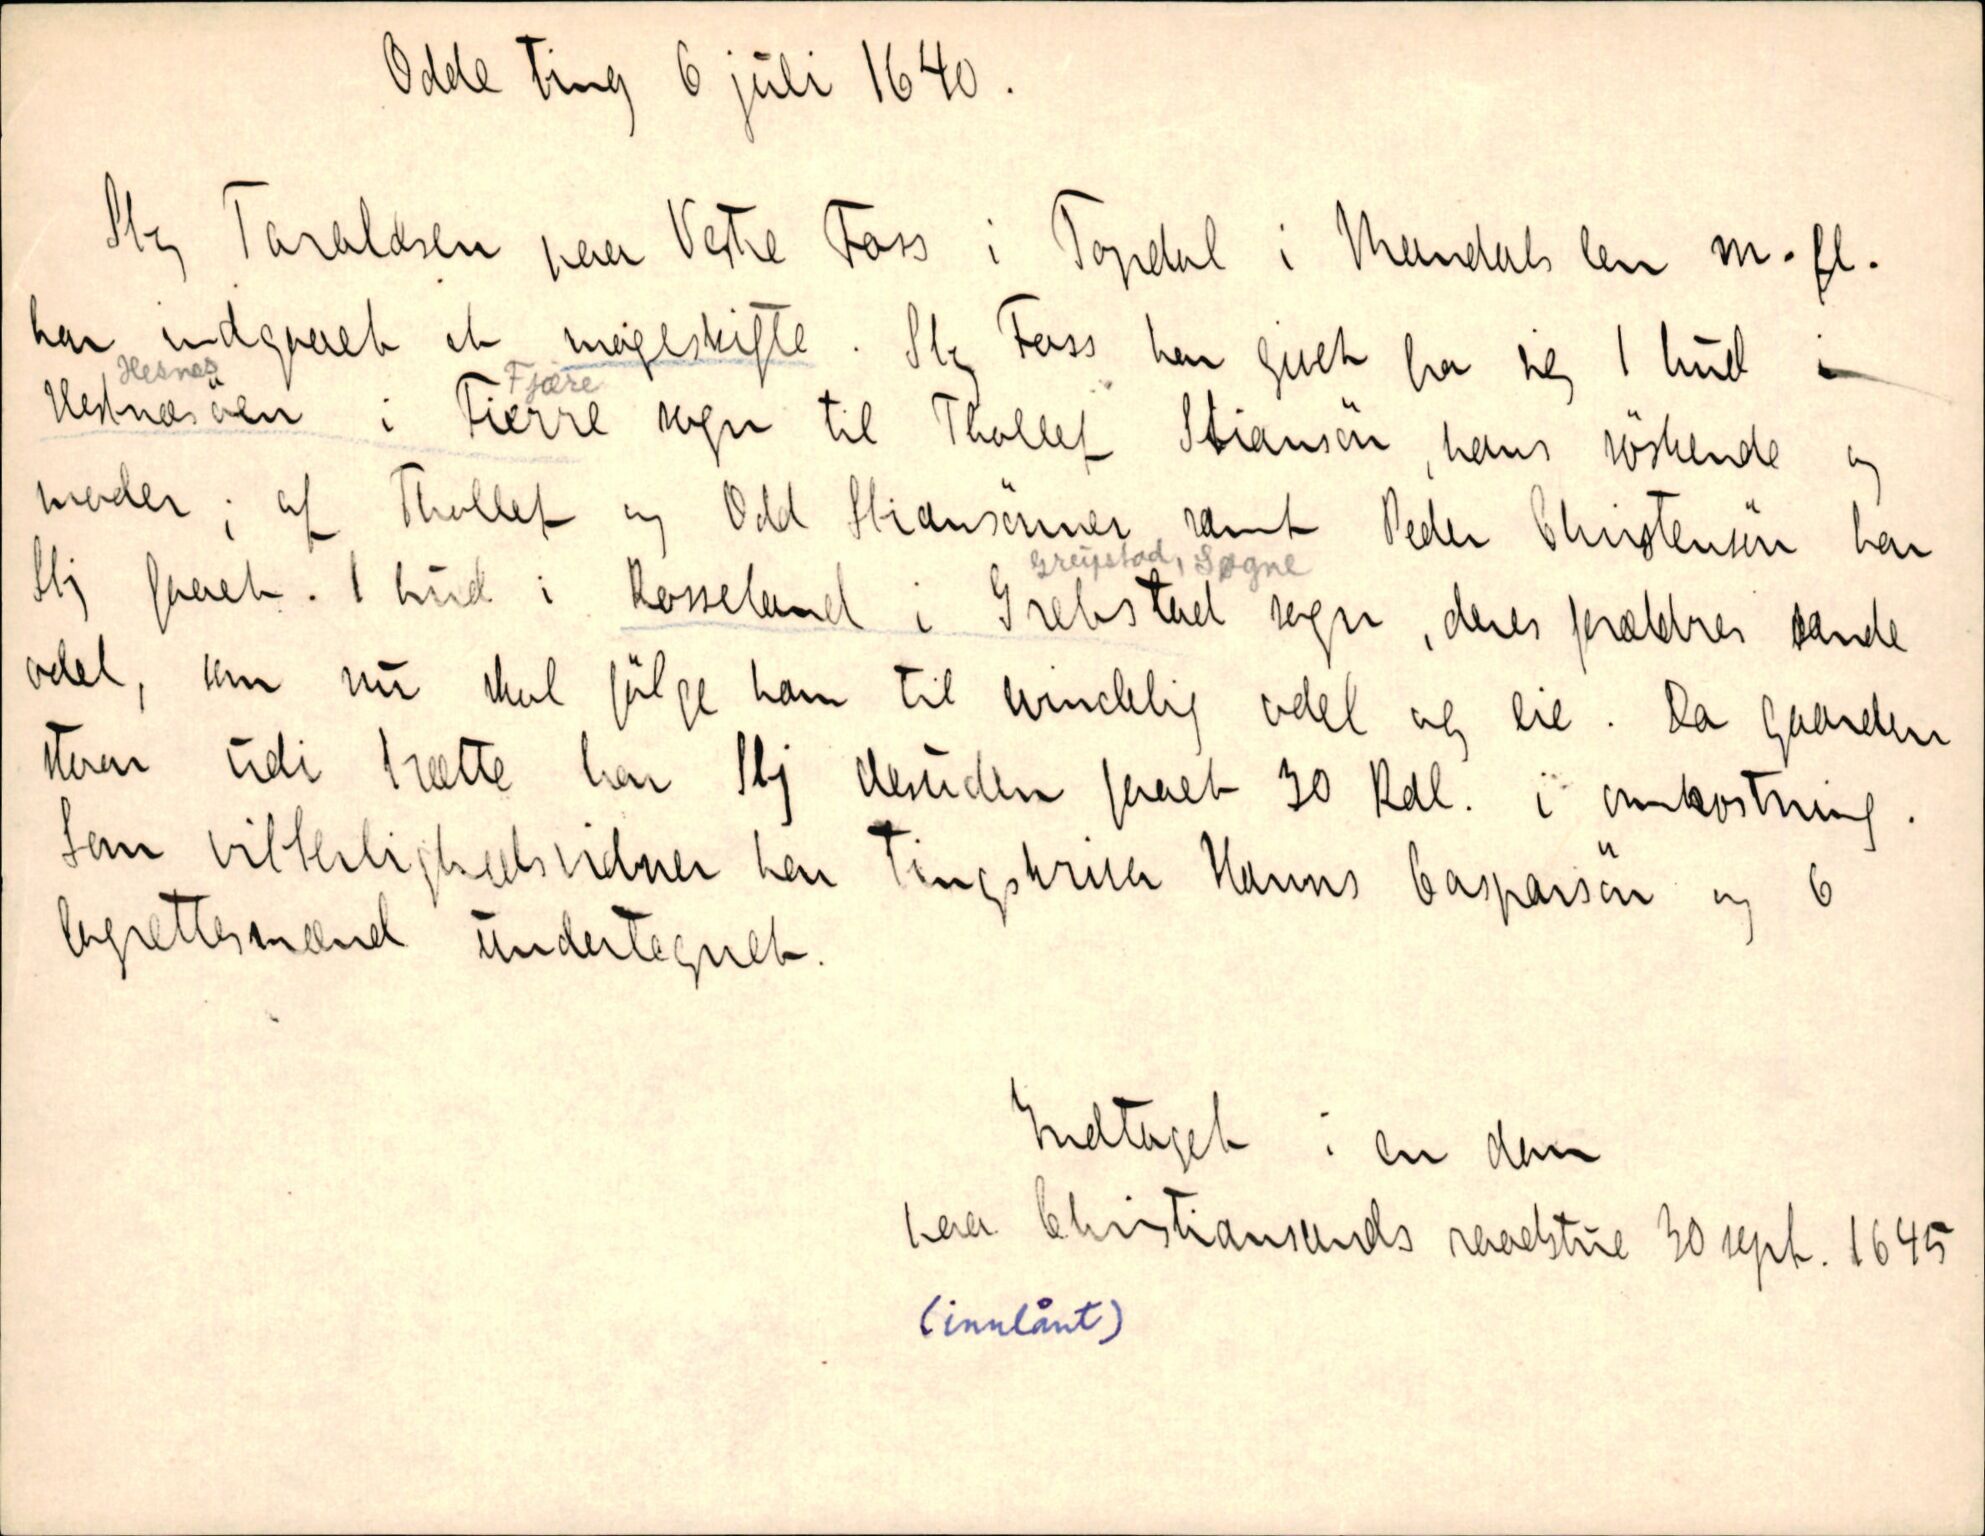 Odde ting 6 juli 1640.
Stij Taraldsen paa Vestre Foss i Topdal i Mandals len m. fl.
har indgaaet et mageskifte. Stij Foss har givet fra sig 1 hud i
Hesnes Fjære
Hestnæsöen i Fierre sogn til Thollef Stiansön, hans söskende og
moder; af Thollef og Odd Stiansönner samt Peder Christensön har
Greipstad, Søgne
Stij faaet. 1 hud i Rosseland i Grebstad sogn, deres forældres sande
odel, som nu skal fölge ham til uvindelig odel og eie. Da gaarden
staar udi trætte har Stij desuden faaet 30 Rdl. i omkostning.
Som vitterlighedsvidner har tingskriver Hanns Caspersön og 6
lagrettesmænd undertegnet.
Indtaget i en dom
paa Christiansands raadstue 30 sept. 1645
(innlånt)